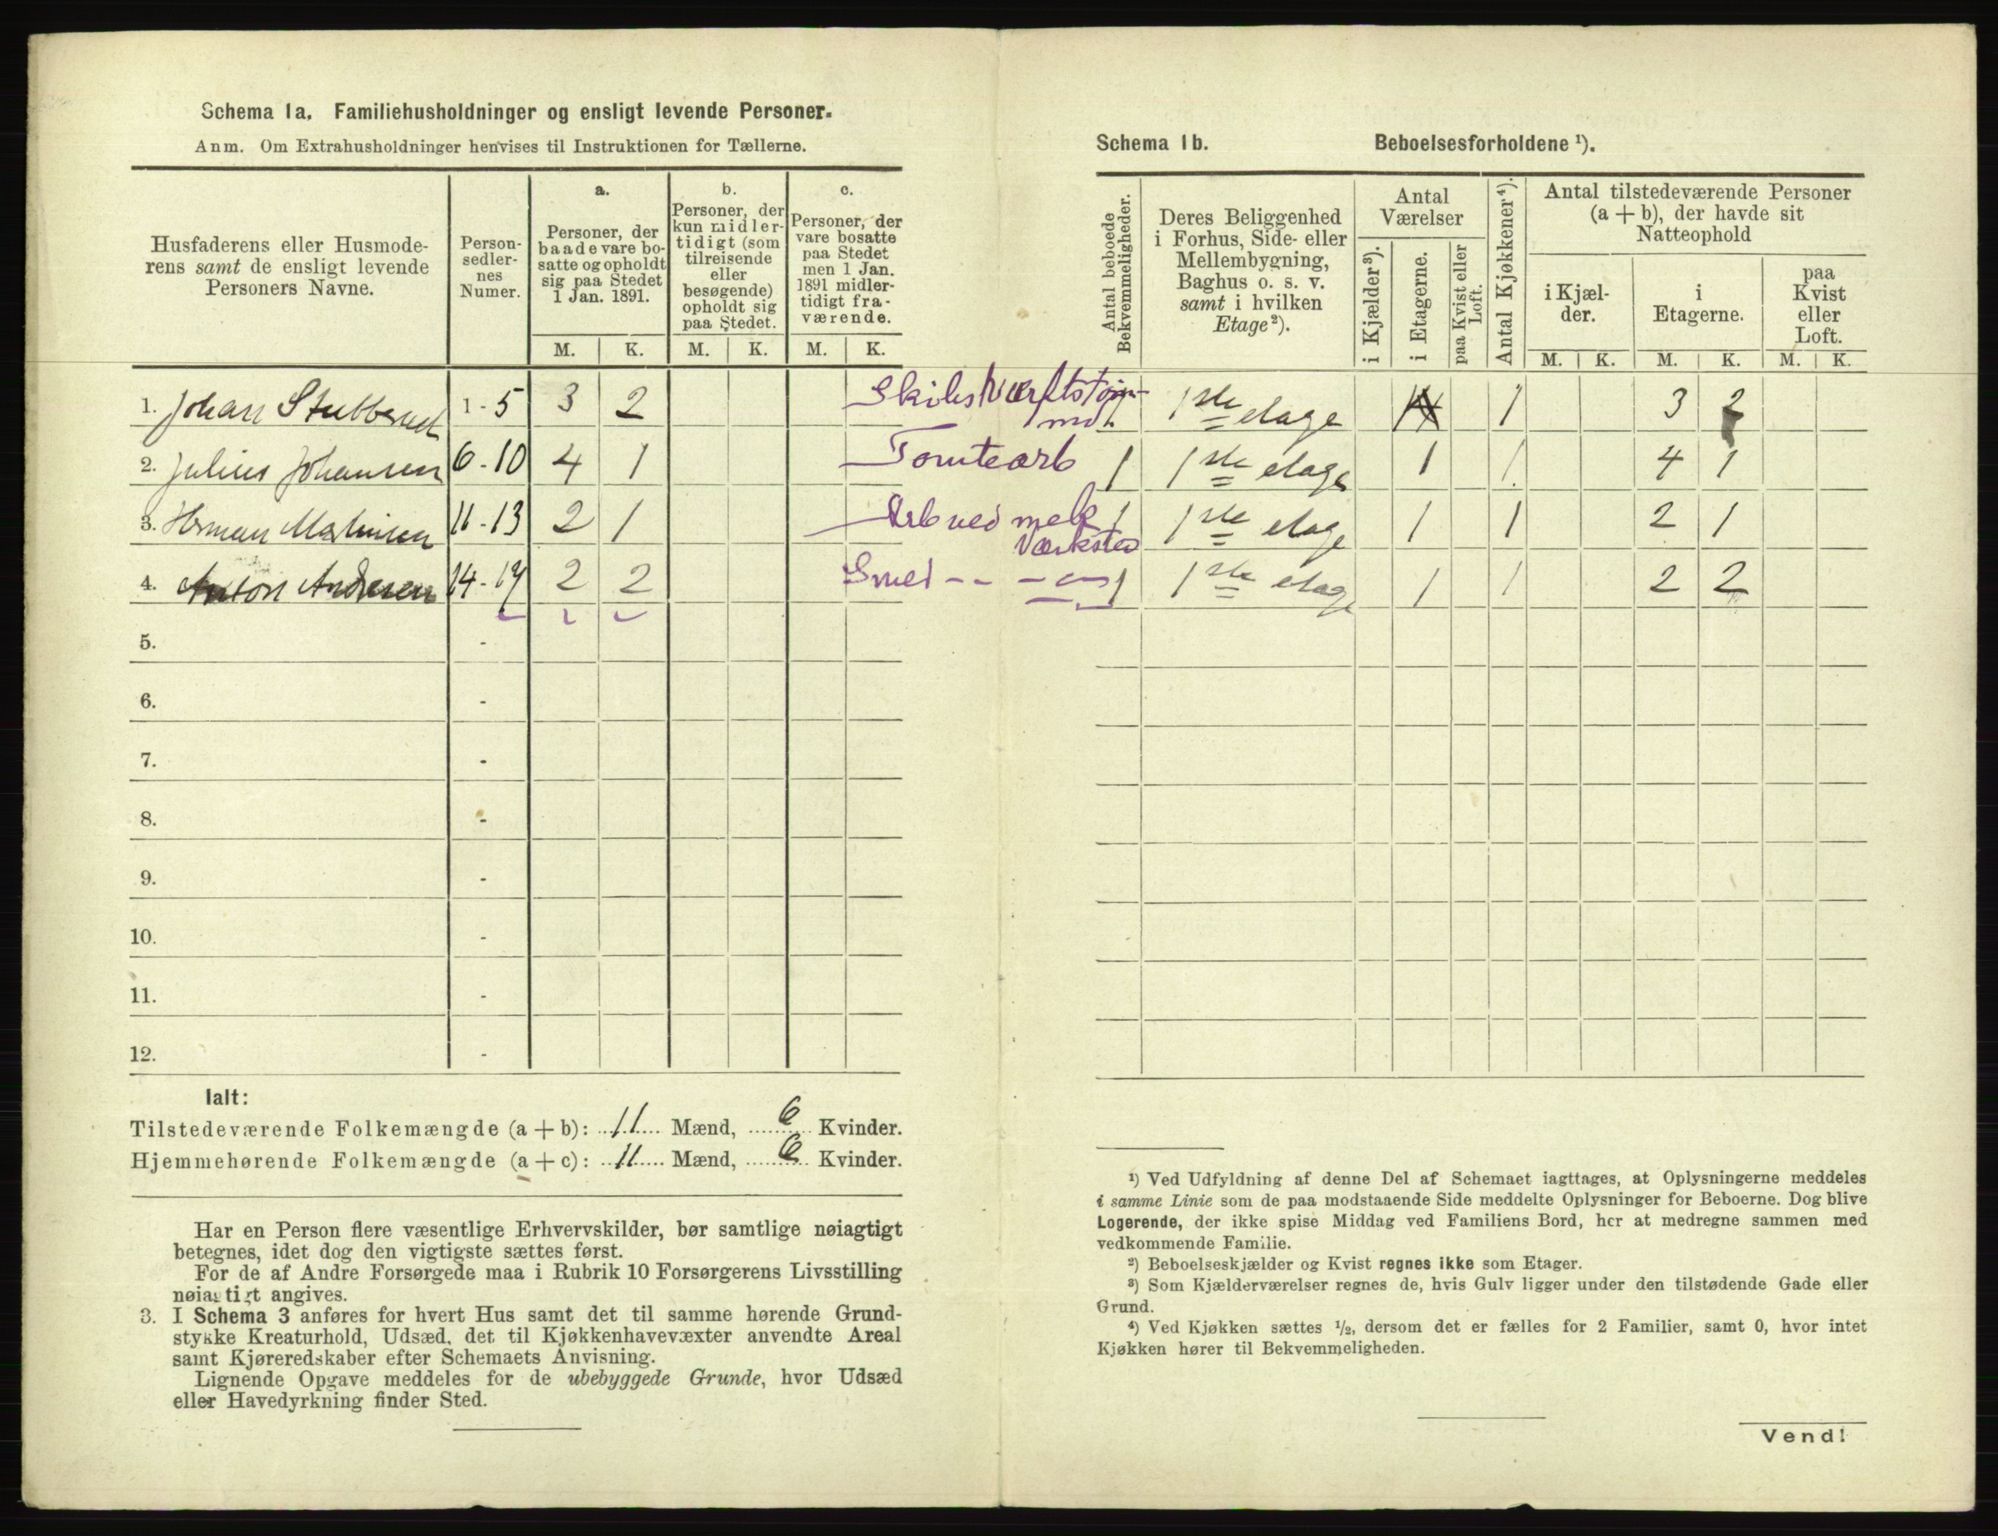 Schema 1a. Familiehusholdninger og ensligt levende Personer.
Anm. Om Extrahusholdninger henvises til Instruktionen for Tællerne.
Husfaderens eller Husmode-
rens samt de ensligt levende
Personers Navne.
Person-
sedler-
nes
Numer.
a.
Personer, der
baade vare bo-
satte og opholdt
sig paa Stedet
1 Jan. 1891.
b.
Personer, der
kun midler-
tidigt (som
tilreisende
eller
besøgende)
opholdt sig
paa Stedet.
c.
Personer, der
vare bosatte
paa Stedet
men 1 Jan.
1891 midler-
tidigt fra-
værende.
M. K. M. K. M. K.
1. Johan Stubberud 1 - 5 3 2
2. Julius Johansen 6 - 10 4 1
3. Herman Martinsen 11 - 13 2 1
4. Anton Andresen 14 - 17 2 2
5. -
6. -
7. -
8. -
9. -
10. -
11. -
12. -
Ialt:
Tilstedeværende Folkemængde (a + b): 11 Mænd, 6 Kvinder.
Hjemmehørende Folkemængde (a + c): 11 Mænd, 6 Kvinder.
Har en Person flere væsentlige Erhvervskilder, bør samtlige nøiagtigt
betegnes, idet dog den vigtigste sættes først.
For de af Andre Forsørgede maa i Rubrik 10 Forsørgerens Livsstilling
nøiagtigt angives.
3. I Schema 3 anføres for hvert Hus samt det til samme hørende Grund-
stykke Kreaturhold, Udsæd, det til Kjøkkenhavevæxter anvendte Areal
samt Kjøreredskaber efter Schemaets Anvisning.
Lignende Opgave meddeles for de ubebyggede Grunde, hvor Udsæd
eller Havedyrkning finder Sted.
Schema 1b. Beboelsesforholdene ¹).
Antal beboede
Bekvemmeligheder.
Deres Beliggenhed
i Forhus, Side- eller
Mellembygning,
Baghus o. s. v.
samt i hvilken
Etage²).
Antal
Værelser
i Kjælder³).
i Etagerne.
paa Kvist eller
Loft.
Antal Kjøkkener⁴).
Antal tilstedeværende Personer
(a + b), der havde sit
Natteophold
i Kjæl-
der.
i
Etagerne.
paa
Kvist
eller
Loft.
M. K. M. K. M. K.
1 1ste etage 1 3 2
Tomtearb 1 1ste etage 1 1 4 1
Arb ved mek
Værksted 1 1ste etage 1 1 2 1
Smed - - - 1 1ste etage 1 1 2 2
¹) Ved Udfyldning af denne Del af Schemaet iagttages, at Oplysningerne meddeles
i samme Linie som de paa modstaaende Side meddelte Oplysninger for Beboerne. Dog blive
Logerende, der ikke spise Middag ved Familiens Bord, her at medregne sammen med
vedkommende Familie.
²) Beboelseskjælder og Kvist regnes ikke som Etager.
³) Som Kjælderværelser regnes de, hvis Gulv ligger under den tilstødende Gade eller
Grund.
⁴) Ved Kjøkken sættes ½, dersom det er fælles for 2 Familier, samt 0, hvor intet
Kjøkken hører til Bekvemmeligheden.
Vend!